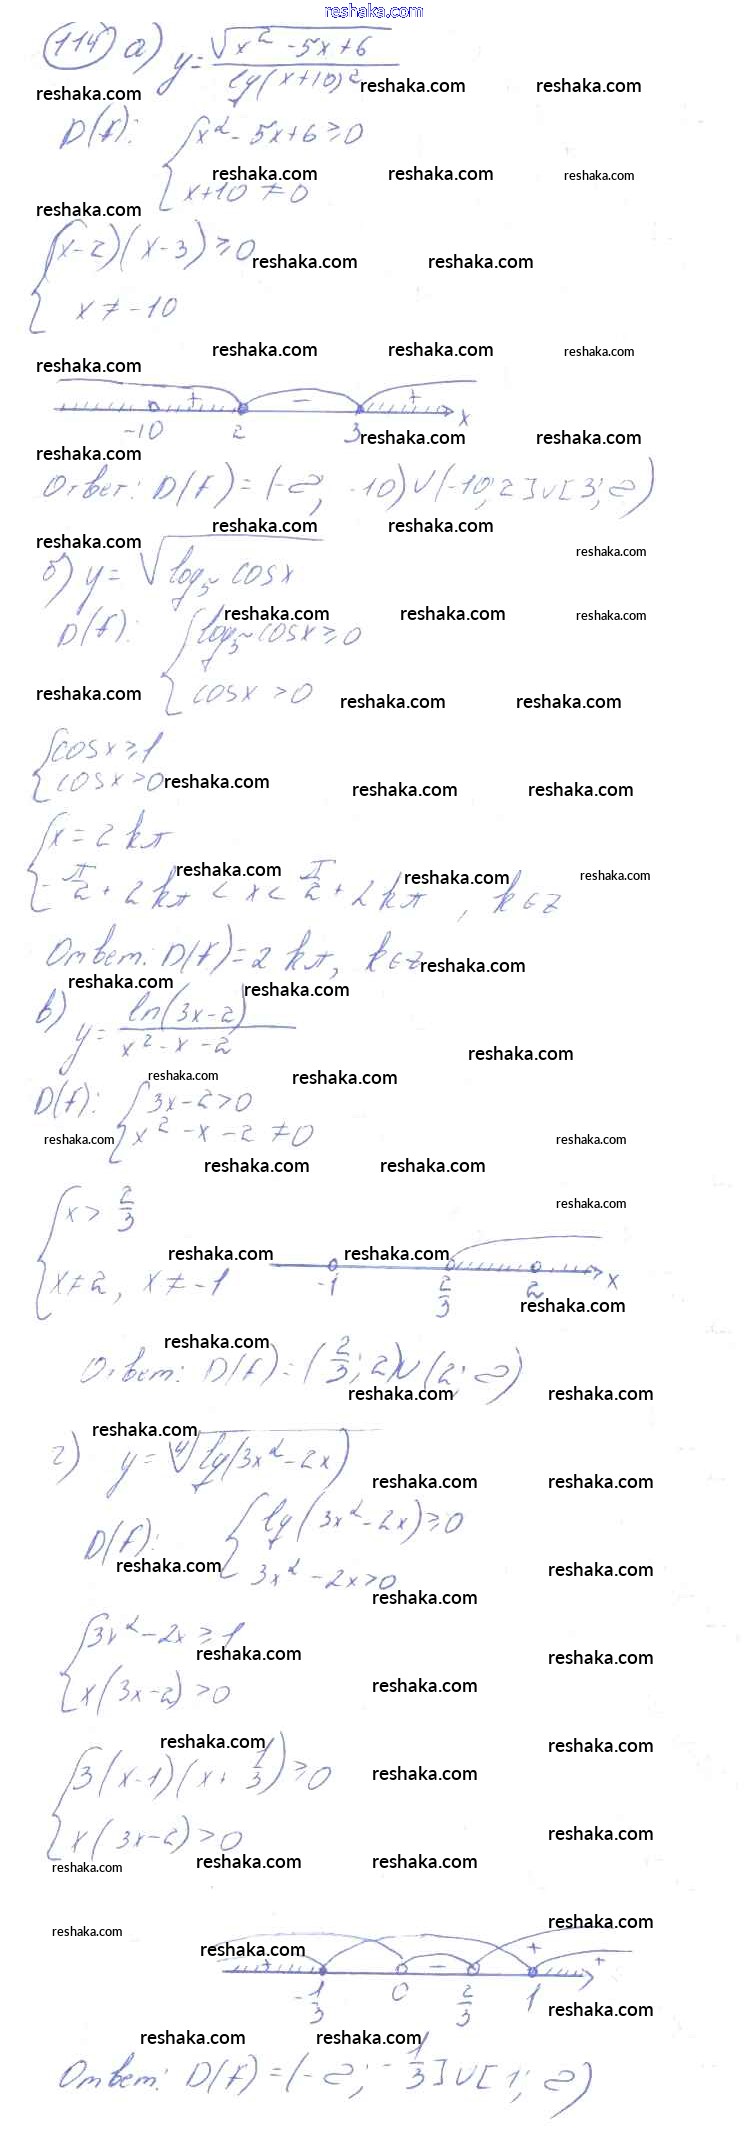 reshaka.com
114 а) y = √(x² - 5x + 6) / lg(x+10)²
reshaka.com reshaka.com reshaka.com
D(f): { x² - 5x + 6 ≥ 0
reshaka.com reshaka.com reshaka.com
x + 10 ≠ 0
reshaka.com
{ (x-2)(x-3) ≥ 0
reshaka.com reshaka.com
x ≠ -10
reshaka.com reshaka.com reshaka.com
reshaka.com
+ − +
-10 2 3 x
reshaka.com reshaka.com
reshaka.com
Ответ: D(f) = (-∞; -10) ∪ (-10; 2] ∪ [3; ∞)
reshaka.com reshaka.com
reshaka.com reshaka.com
б) y = √(log₅ cosx)
reshaka.com reshaka.com reshaka.com
D(f): { log₅ cosx ≥ 0
reshaka.com cosx > 0 reshaka.com reshaka.com
{ cosx ≥ 1
cosx > 0 reshaka.com reshaka.com reshaka.com
{ x = 2kπ
reshaka.com reshaka.com reshaka.com
-π/2 + 2kπ < x < π/2 + 2kπ, k∈z
Ответ: D(f) = 2kπ, k∈z reshaka.com
reshaka.com reshaka.com
в) y = ln(3x-2) / x² - x - 2
reshaka.com
reshaka.com reshaka.com
D(f): { 3x - 2 > 0
reshaka.com x² - x - 2 ≠ 0 reshaka.com
reshaka.com reshaka.com
{ x > 2/3
reshaka.com
reshaka.com reshaka.com
x ≠ 2, x ≠ -1
-1 2/3 2 x
reshaka.com
reshaka.com
Ответ: D(f) = (2/3; 2) ∪ (2; ∞)
reshaka.com reshaka.com
reshaka.com
г) y = ⁴√(lg(3x² - 2x))
reshaka.com reshaka.com
D(f): { lg(3x² - 2x) ≥ 0
reshaka.com reshaka.com
3x² - 2x > 0
reshaka.com
{ 3x² - 2x ≥ 1
reshaka.com reshaka.com
reshaka.com
x(3x-2) > 0
reshaka.com reshaka.com
{ 3(x-1)(x + 1/3) ≥ 0
reshaka.com
x(3x-2) > 0
reshaka.com
reshaka.com reshaka.com reshaka.com
reshaka.com reshaka.com
reshaka.com
+ − + +
-1/3 0 2/3 1
reshaka.com
reshaka.com reshaka.com
Ответ: D(f) = (-∞; -1/3] ∪ [1; ∞)